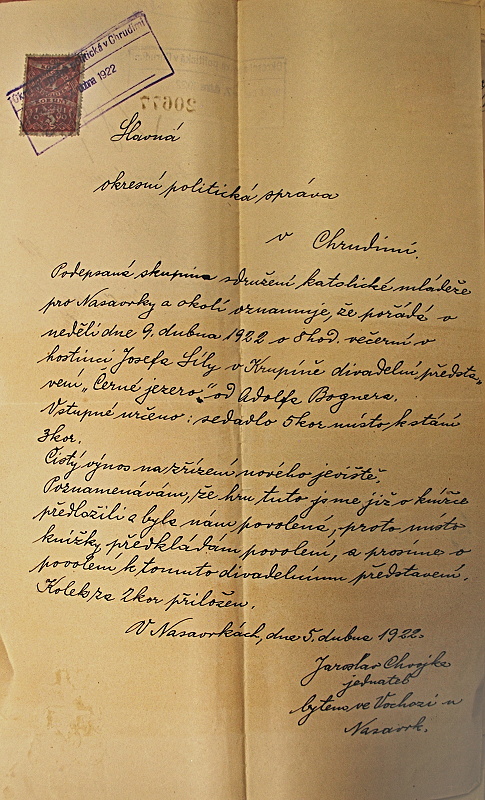 politická v Chrudimi
dubna 1922
20677
Slavná
okresní politická správa
v Chrudimi.
Podepsaná skupina sdružení katolické mládeže
pro Nasavrky a okolí oznamuje, že pořádá v
neděli dne 9. dubna 1922 o 8 hod. večerní v
hostinci Josefa Síly v Krupíně divadelní předsta-
vení, "Černé jezero" od Adolfa Bognera.
Vstupné určeno: sedadlo 5 kor místo k stání
3 kor.
Čistý výnos na zřízení nového jeviště.
Poznamenávám, že hru tuto jsme již v knížce
předložili a byla nám povolena, proto místo
knížky, předkládám povolení, a prosíme o
povolení k tomuto divadelnímu představení.
Kolek za 2 kor přiložen.
V Nasavrkách, dne 5. dubna 1922.
Jaroslav Chvojka
jednatel
bytem ve Vochozi u
Nasavrk.